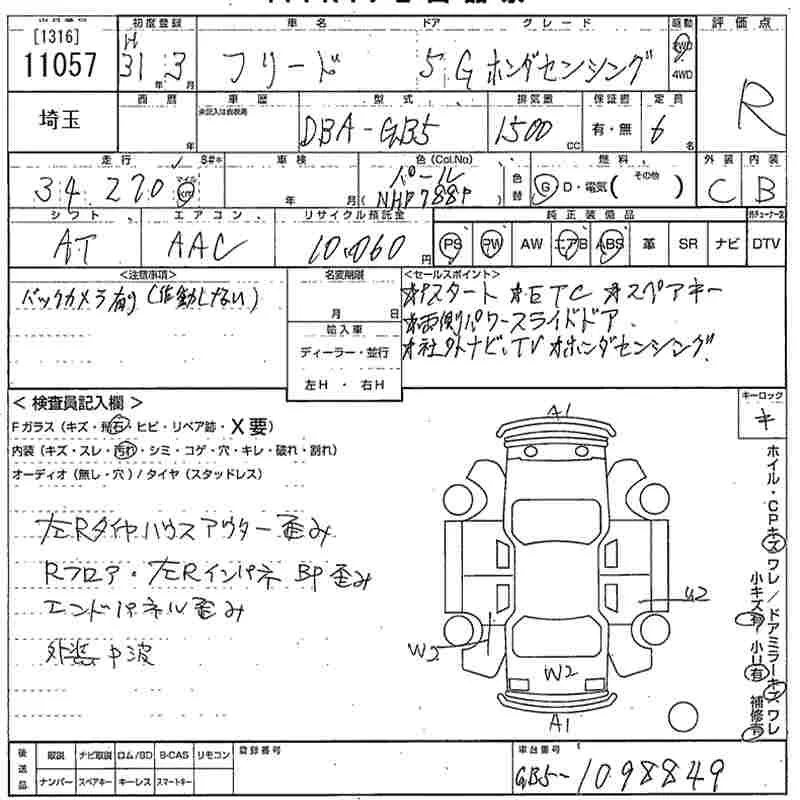 [1316]
11057
初度登録
H 31年 3月
車名 ドア グレード
フリード 5 G ホンダセンシング
駆動
2WD
4WD
評価点
R
埼玉
西暦
年
車歴
未記入は自家用
型式
DBA-GB5
排気量
1500 CC
保証書
有・無
定員
6名
走行
34,270
マイル
km
S#*
車検
年 月
色(Col.No)
パール
(NHP788P)
色替
燃料
G D・電気 (その他 )
外装
C
内装
B
シフト
AT
エアコン
AAC
リサイクル預託金
10,060円
純正装備品
PS PW AW エアB ABS 革 SR ナビ DTV
<注意事項>
バックカメラ有り(作動しない)
名変期限
月 日
輸入車
ディーラー・並行
左H・右H
<セールスポイント>
オPスタート オETC オスペアキー
オ両側パワースライドドア
オ社外ナビ、TV オホンダセンシング
<検査員記入欄>
Fガラス(キズ・飛石・ヒビ・リペア跡・X要)
内装(キズ・スレ・汚れ・シミ・コゲ・穴・キレ・破れ・割れ)
オーディオ(無し・穴)/タイヤ(スタッドレス)
左Rタイヤハウスアウター歪み
Rフロア・左Rインパネ BP歪み
エンドパネル歪み
外装中波
A1
U2
W2
W2
A1
キーロック
キ
ホイル・CPキズ ワレ/ドアミラーキズ ワレ
小キズ有 小U有 補修有
後送品
取説 ナビ取説 ロム/SD B-CAS リモコン
ナンバー スペアキー キーレス スマートキー
登録番号
車台番号
GB5-1098849